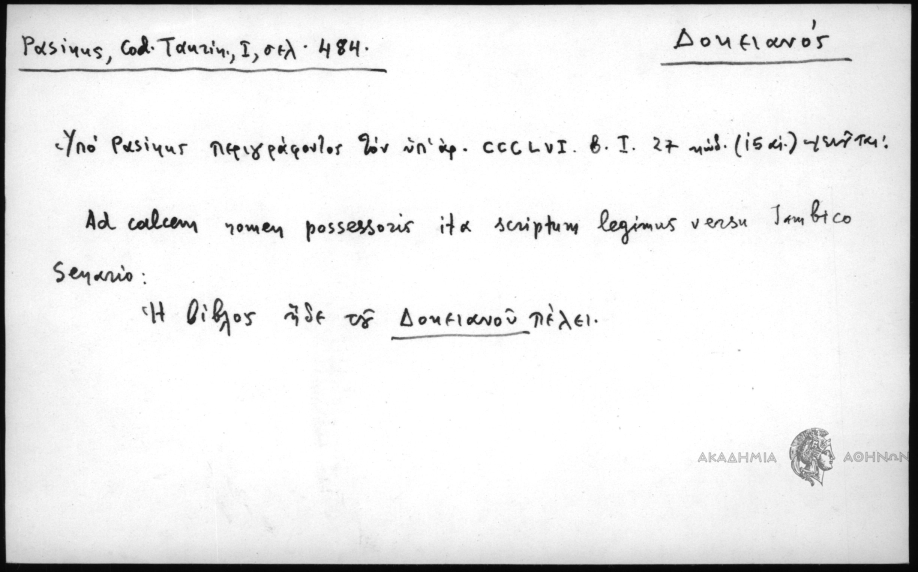 Pasinus, Cod. Taurin., I, σελ. 484.
Δοκειανός
Ὑπὸ Pasinus περιγράφοντος τὸν ὑπ' ἀρ. CCCLVI. b. I. 27 κώδ. (15 αἰ.)
Ad calcem nomen possessoris ita scriptum legimus versu Iambico
Senario:
Ἡ βίβλος ἥδε τοῦ Δοκειανοῦ πέλει.
ΑΚΑΔΗΜΙΑ ΑΘΗΝΩΝ